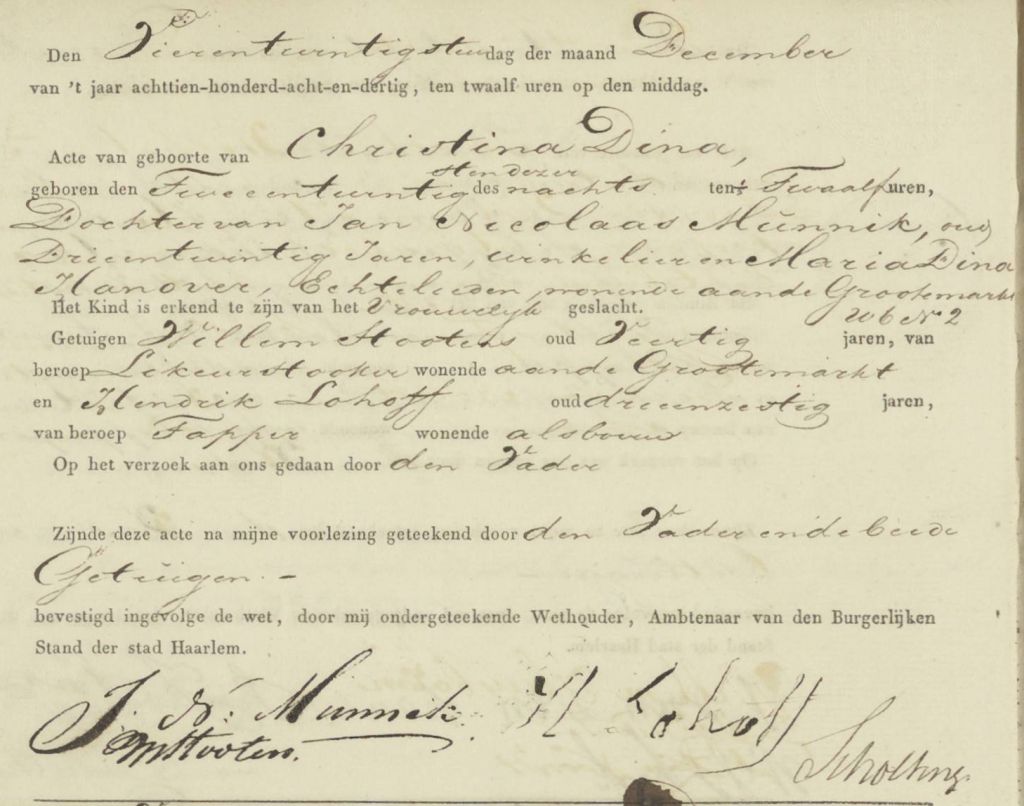 Den Vierentwintigsten dag der maand December
van 't jaar achttien-honderd-acht-en-dertig, ten twaalf uren op den middag.
Acte van geboorte van Christina Dina,
geboren den Tweeentwintigsten dezer des nachts ten Twaalf uren,
Dochter van Jan Nicolaas Munnik, oud
Drieentwintig Jaren, winkelier en Maria Dina
Hanover, Echtelieden, wonende aan de Grootemarkt
W 6 N 2
Het Kind is erkend te zijn van het Vrouwelijk geslacht.
Getuigen Willem Stooten oud Veertig jaren, van
beroep Likeurstooker wonende aan de Grootemarkt
en Hendrik Lohoff oud drieenzestig jaren,
van beroep Tapper wonende als boven
Op het verzoek aan ons gedaan door den Vader
Zijnde deze acte na mijne voorlezing geteekend door den Vader en de beide
Getuigen. –
bevestigd ingevolge de wet, door mij ondergeteekende Wethouder, Ambtenaar van den Burgerlijken
Stand der stad Haarlem.
J. N: Munnik. H. Lohoff
W Stooten. Scholting